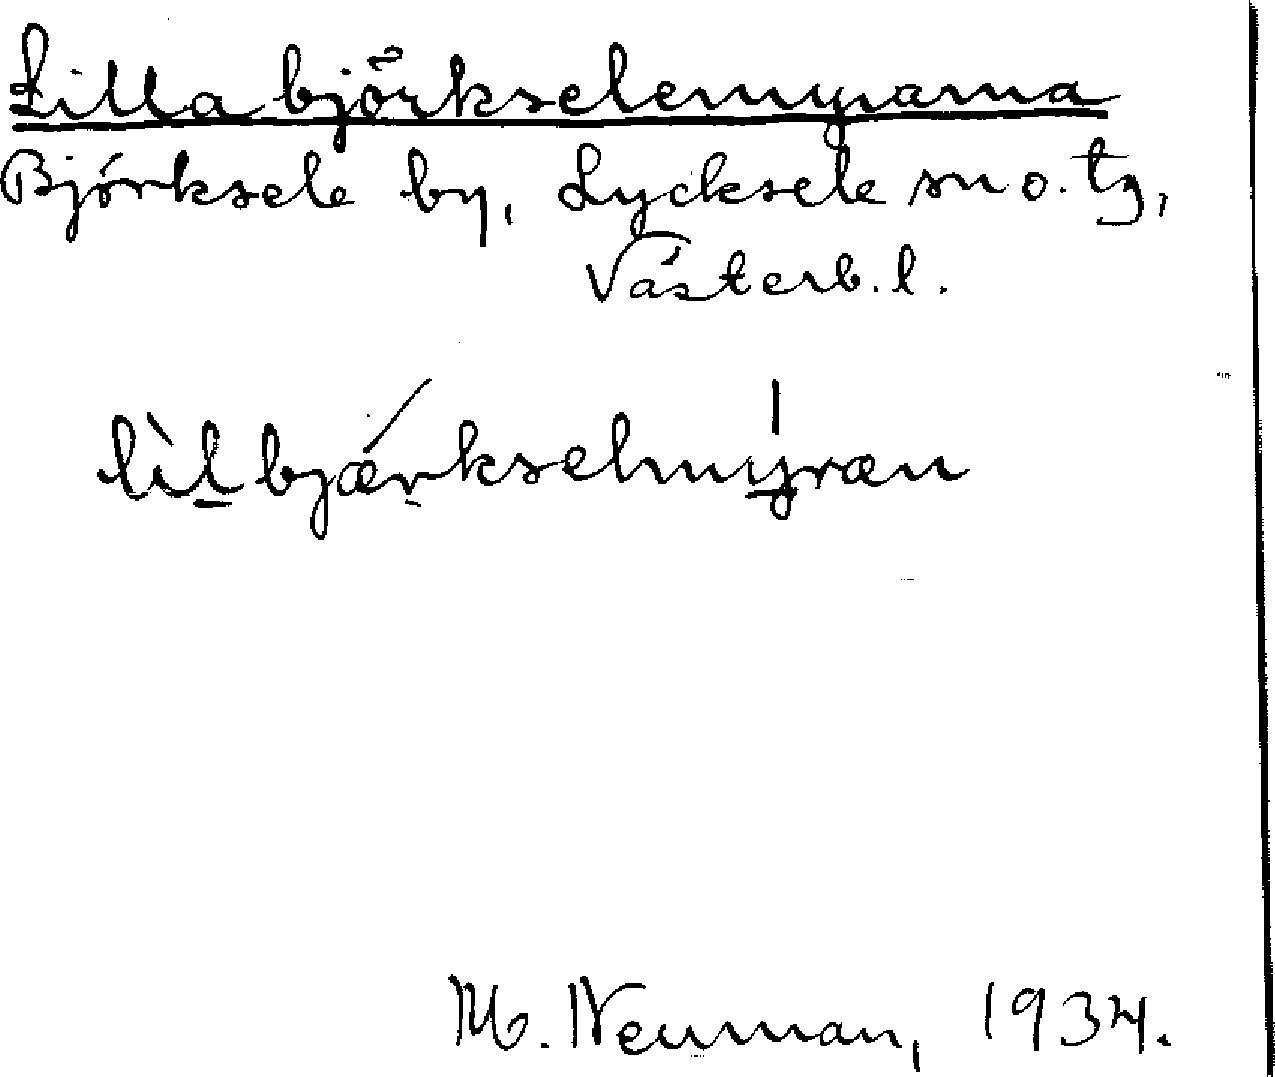 Lilla björkselemyrarna
Björksele by, Lycksele sn o. tg,
Västerb. l.
lìl bjærkselmyræn
M. Neuman, 1934.